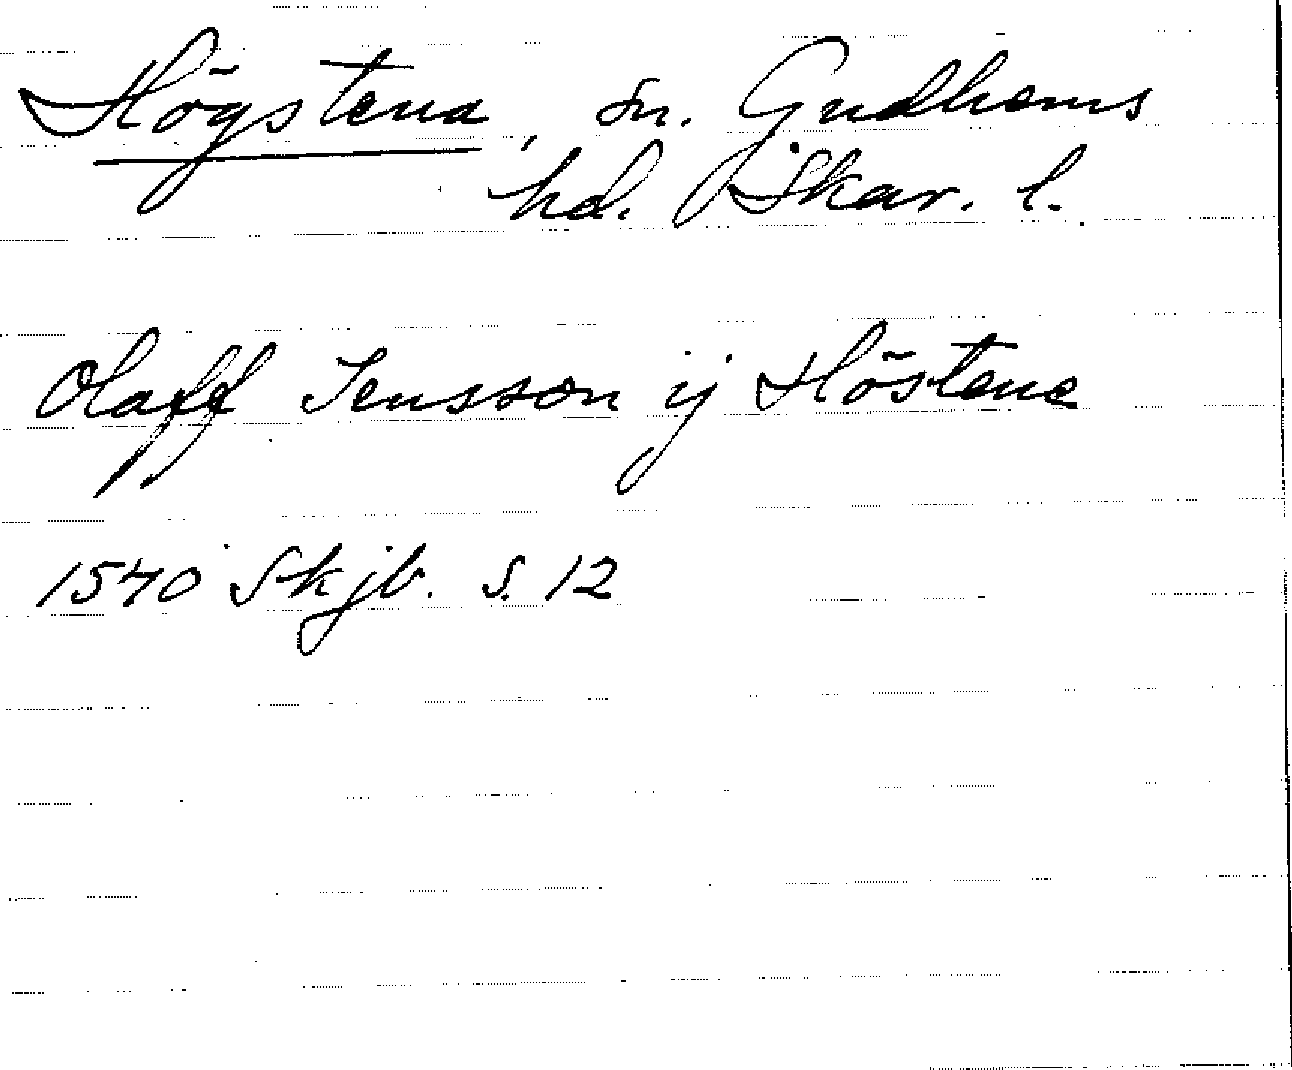 Högstena, sn. Gudhems
hd. Skar. l.
Olaff Jensson ij Höstene
1540 Skjb. s. 12